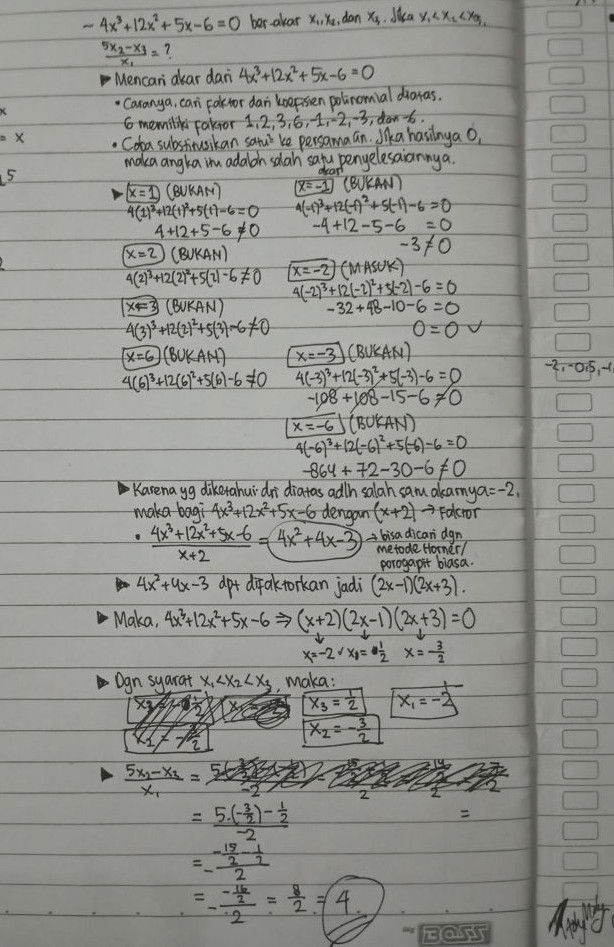 - 4x³+12x²+5x-6=0 ber-akar x₁,x₂, dan x₃. Jika x₁<x₂<x₃,
5x₂-x₃ / x₁ = ?
▶ Mencari akar dari 4x³+12x²+5x-6=0
• Caranya, cari faktor dari koefisien polinomial diatas.
6 memiliki faktor 1,2,3,6,-1,-2,-3, dan -6.
• Coba substitusikan satu² ke persamaan. Jika hasilnya 0,
maka angka itu adalah salah satu penyelesaiannya.
akar
▶ x=1 (BUKAN)
4(1)³+12(1)²+5(1)-6=0
4+12+5-6≠0
x=2 (BUKAN)
4(2)³+12(2)²+5(2)-6≠0
x=3 (BUKAN)
4(3)³+12(2)²+5(3)-6≠0
x=6 (BUKAN)
4(6)³+12(6)²+5(6)-6≠0
x=-1 (BUKAN)
4(-1)³+12(-1)²+5(-1)-6=0
-4+12-5-6=0
-3≠0
x=-2 (MASUK)
4(-2)³+12(-2)²+5(-2)-6=0
-32+48-10-6=0
0=0 ✓
x=-3 (BUKAN)
4(-3)³+12(-3)²+5(-3)-6=0
-108+108-15-6≠0
x=-6 (BUKAN)
4(-6)³+12(-6)²+5(-6)-6=0
-864+72-30-6≠0
▶ Karena yg diketahui dri diatas adlh salah satu akarnya=-2,
maka bagi 4x³+12x²+5x-6 dengan (x+2) → Faktor
• 4x³+12x²+5x-6 / x+2 = 4x²+4x-3 → bisa dicari dgn
metode Horner/
porogapit biasa.
▶ 4x²+4x-3 dpt difaktorkan jadi (2x-1)(2x+3).
▶ Maka, 4x³+12x²+5x-6 ⇒ (x+2)(2x-1)(2x+3)=0
↓ ↓ ↓
x=-2 ✓ x=1/2 x=-3/2
▶ Dgn syarat x₁<x₂<x₃, maka:
x₃=1/2 x₁=-2
x₂=-3/2
▶ 5x₂-x₃ / x₁ =
= 5.(-3/2)-1/2 / -2 =
= - -15/2-1/2 / 2
= - -16/2 / 2 = 8/2 = 4
x
= x
-2,-0.5,-
BOSS